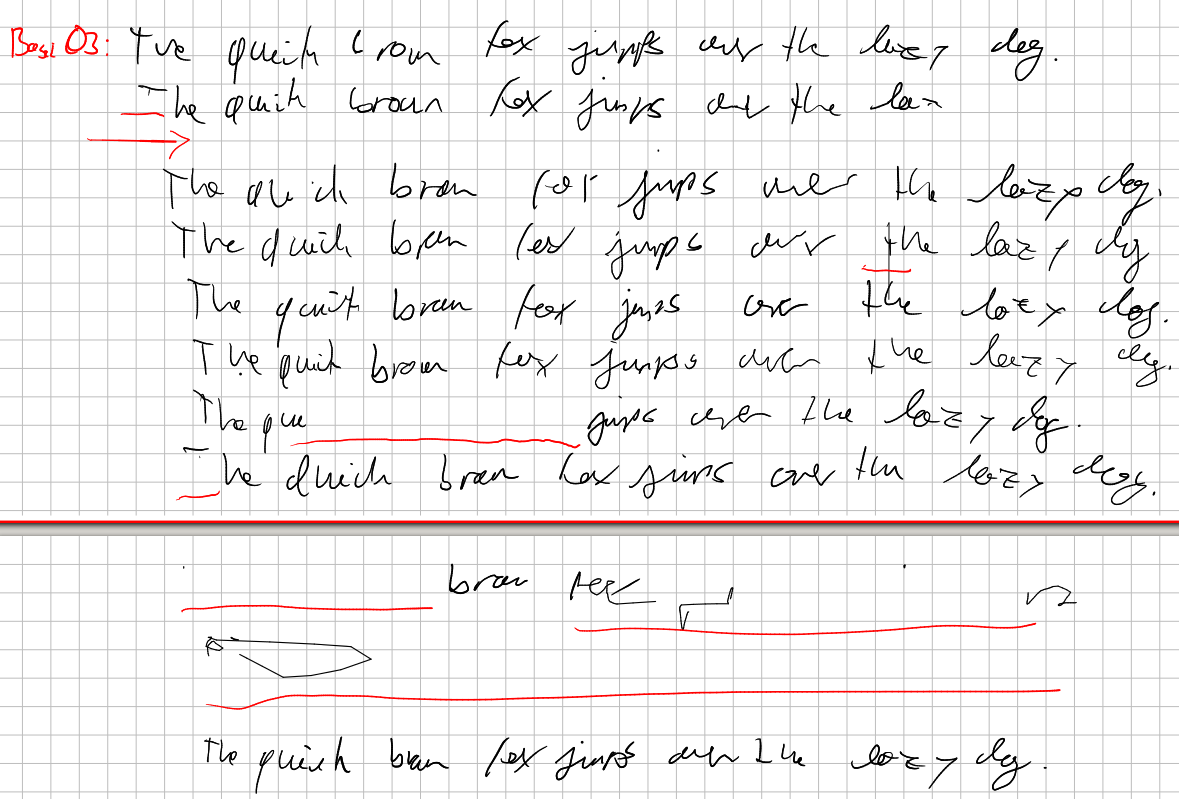 The quick brown fox jumps over the lazy dog.
The quick brown fox jumps over the laz
The quick brown fox jumps over the lazy dog.
The quick brown fox jumps over the lazy dog
The quick brown fox jumps over the lazy dog.
The quick brown fox jumps over the lazy dog.
The qu jumps over the lazy dog.
The quick brown fox jumps over the lazy dog.
brown fox
The quick brown fox jumps over the lazy dog.